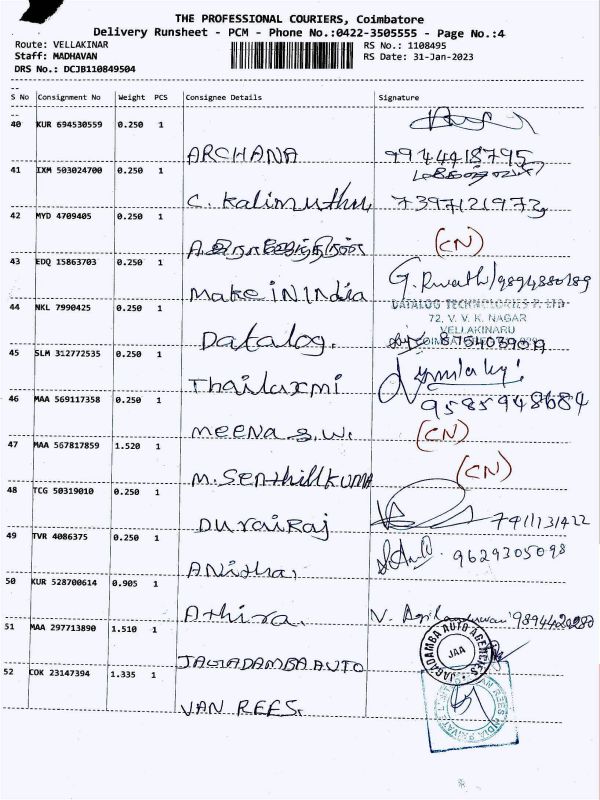 THE PROFESSIONAL COURIERS, Coimbatore
Delivery Runsheet - PCM - Phone No.:0422-3505555 - Page No.:4
Route: VELLAKINAR RS No.: 1108495
Staff: MADHAVAN RS Date: 31-Jan-2023
DRS No.: DCJB110849504
S No Consignment No Weight PCS Consignee Details Signature
40 KUR 694530559 0.250 1
ARCHANA 9944418795
41 IXM 503024700 0.250 1
C. Kalimuthu 7397121973
42 MYD 4709405 0.250 1
(CN)
43 EDQ 15863703 0.250 1
Make IN India
44 NKL 7990425 0.250 1
DATALOG TECHNOLOGIES P. LTD
72, V. V. K. NAGAR
VELLAKINARU
Datalog.
45 SLM 312772535 0.250 1
Thailaxmi
46 MAA 569117358 0.250 1
9585948684
MEENA S.W. (CN)
47 MAA 567817859 1.520 1
M. Senthill KUMA (CN)
48 TCG 50319010 0.250 1
DURAIRAJ
49 TVR 4086375 0.250 1
9629305098
Anitha,
50 KUR 528700614 0.905 1
Athira.
51 MAA 297713890 1.510 1
JAGADAMBA AUTO AGENCIES
JAA
JAGADAMBA AUTO
52 COK 23147394 1.335 1
VAN REES.